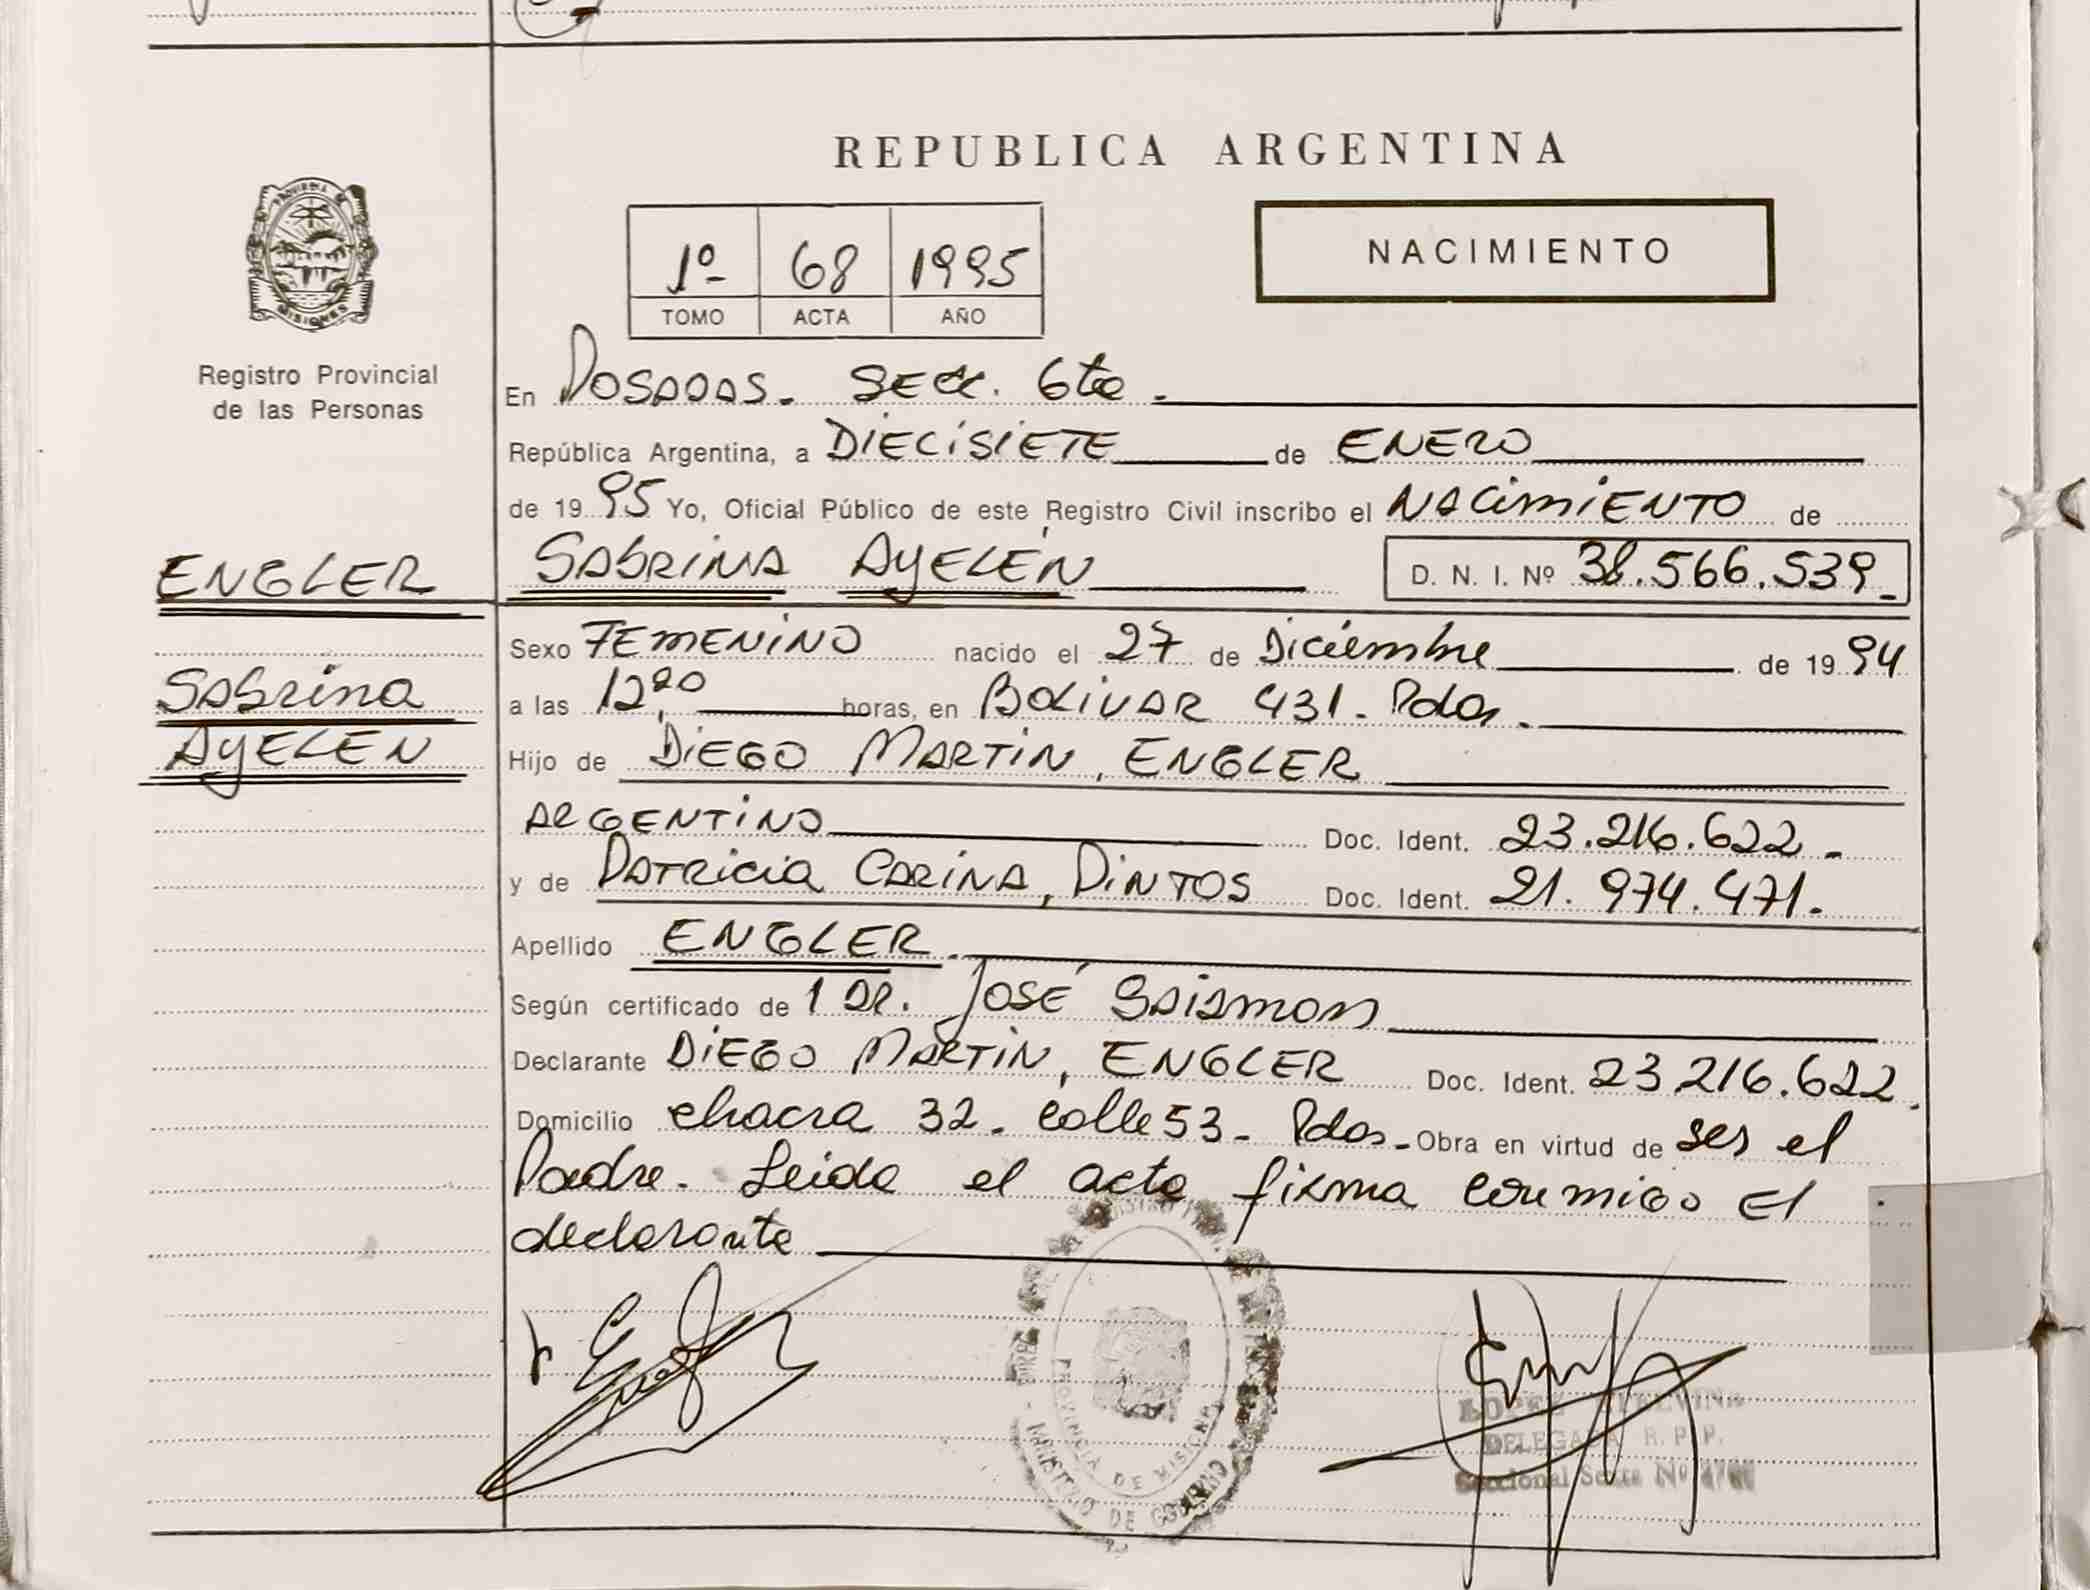 REPUBLICA ARGENTINA
1º 68 1995
TOMO ACTA AÑO
NACIMIENTO
PROVINCIA DE
MISIONES
Registro Provincial
de las Personas
En Posadas. Secc. 6ta.
República Argentina, a DIECISIETE de ENERO
de 1995 Yo, Oficial Público de este Registro Civil inscribo el NACIMIENTO de
ENGLER SABRINA AYELÉN D. N. I. Nº 38.566.539
Sexo FEMENINO nacido el 27 de Diciembre de 1994
Sabrina a las 12,00 horas, en BOLIVAR 431. Pdas.
AYELEN Hijo de DIEGO MARTIN, ENGLER
ARGENTINO Doc. Ident. 23.216.622.-
y de PATRICIA CARINA, PINTOS Doc. Ident. 21.974.471.
Apellido ENGLER.
Según certificado de 1 DR. JOSÉ
Declarante DIEGO MARTIN, ENGLER Doc. Ident. 23.216.622.
Domicilio chacra 32. calle 53- Pdas. Obra en virtud de ser el
Padre. Leida el acta firma conmigo El
declarante
PROVINCIA DE MISIONES
MINISTERIO DE GOBIERNO
LOPEZ
DELEGADA R. P. P.
Seccional Sexta Nº